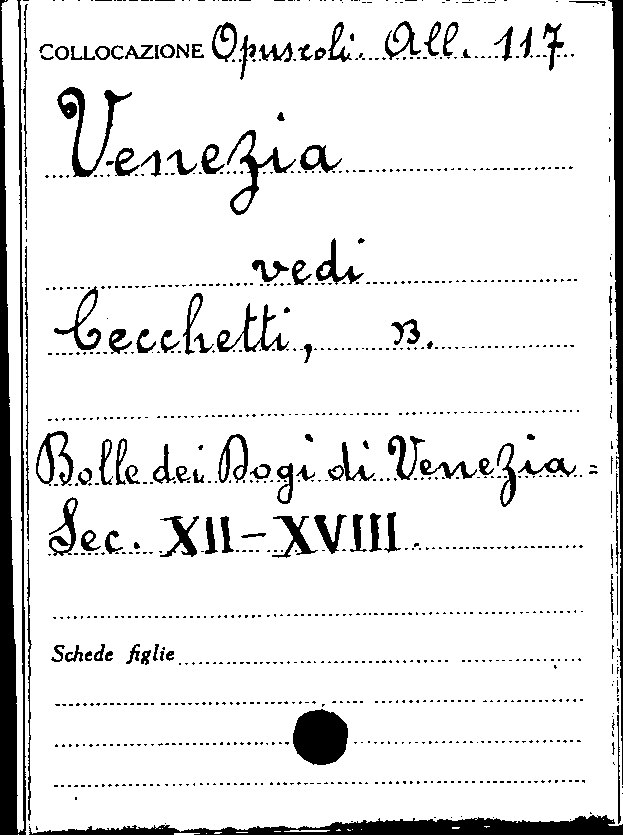 COLLOCAZIONE Opuscoli. All. 117
Venezia
vedi
Cecchetti, B.
Bolle dei Dogi di Venezia =
Sec. XII-XVIII.
Schede figlie